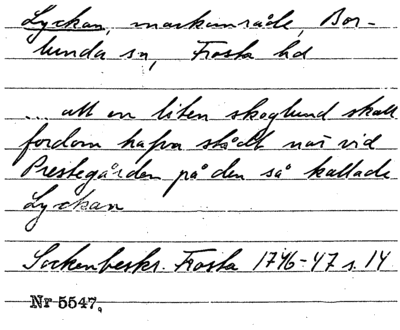 Lyckan, markområde, Bor-
lunda sn, Frosta hd
... att en liten skoglund skall
fordom hafva stådt när vid
Prestegården på den så kallade
Lyckan
Sockenbeskr. Frosta 1746-47 s. 14
Nr 5547.